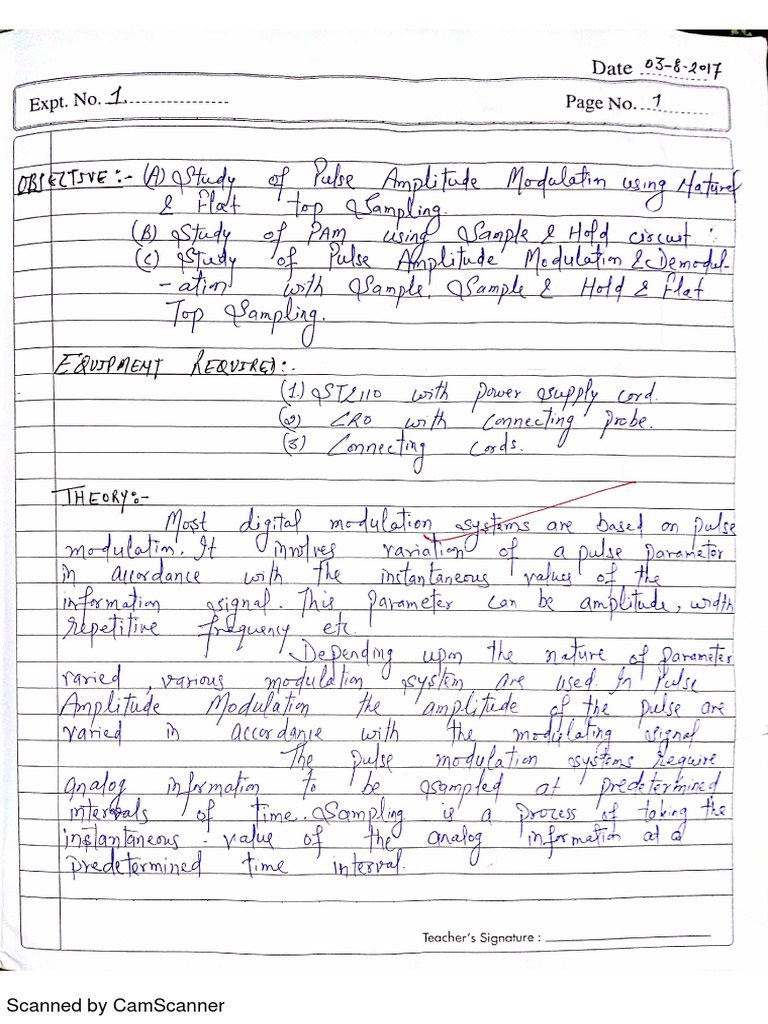 Date 03-8-2017
Expt. No. 1
Page No. 1
OBJECTIVE:- (A) Study of Pulse Amplitude Modulatin using Naturel
& Flat top Sampling.
(B) Study of PAM using Sample & Hold circuit
(C) Study of Pulse Amplitude Modulation & Demodul-
-ation with Sample, Sample & Hold & Flat
Top Sampling.
EQUIPMENT REQUIRED:-
(1.) ST2110 with power supply cord.
(2) CRO with Connecting Probe.
(3) Connecting Cords.
THEORY:-
Most digital modulation systems are based on pulse
modulatin. It involves variation of a pulse parameter
in accordance with the instantaneous values of the
information signal. This Parameter can be amplitude, width
repetitive frequency etc.
Depending upon the nature of parameter
varied, various modulation system are used. In Pulse
Amplitude Modulation the amplitude of the pulse are
varied in accordance with the modulating signal
The pulse modulation systems require
analog information to be sampled at predetermined
intervals of time. Sampling is a process of taking the
instantaneous value of the analog information at a
predetermined time interval.
Teacher's Signature :
Scanned by CamScanner